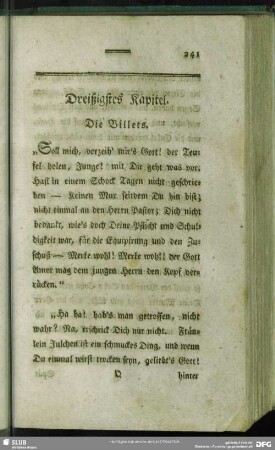 241
Dreißigstes Kapitel.
Die Billets.
„Soll mich, verzeih' mir's Gott! der Teu-
fel holen, Junge! mit Dir geht was vor.
Hast in einem Schock Tagen nicht geschrie-
ben — Keinen Mux seitdem Du hin bist;
nicht einmal an den Herrn Pastor; Dich nicht
bedankt, wie's doch Deine Pflicht und Schul-
digkeit war, für die Equipirung und den Zu-
schuß — Merke wohl! Merke wohl! der Gott
Amor mag dem jungen Herrn den Kopf ver-
rücken.“
„Ha ha! hab's man getroffen, nicht
wahr? Na, erschrick Dich nur nicht. Fräu-
lein Julchen ist ein schmuckes Ding, und wenn
Du einmal wirst trocken seyn, geliebt's Gott!
Q hinter
SLUB